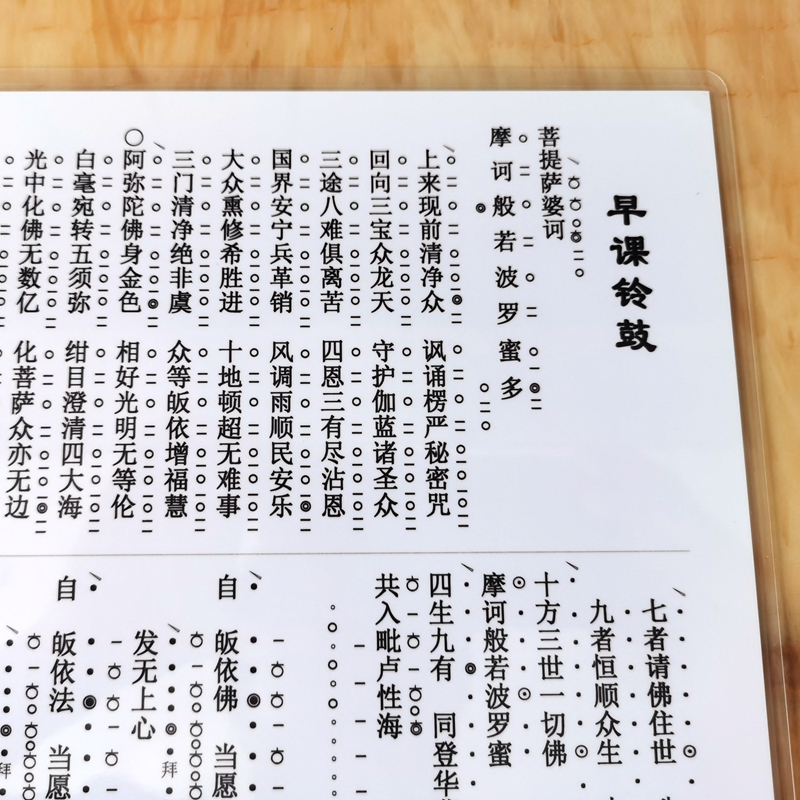 早课铃鼓
菩提萨婆诃
摩诃般若波罗蜜多
上来现前清净众 讽诵楞严秘密咒
回向三宝众龙天 守护伽蓝诸圣众
三途八难俱离苦 四恩三有尽沾恩
国界安宁兵革销 风调雨顺民安乐
大众熏修希胜进 十地顿超无难事
三门清净绝非虞 众等皈依增福慧
阿弥陀佛身金色 相好光明无等伦
白毫宛转五须弥 绀目澄清四大海
光中化佛无数亿 化菩萨众亦无边
七者请佛住世
九者恒顺众生
十方三世一切佛
摩诃般若波罗蜜
四生九有 同登华
共入毗卢性海
自 皈依佛 当愿
发无上心
拜
自 皈依法 当愿
拜